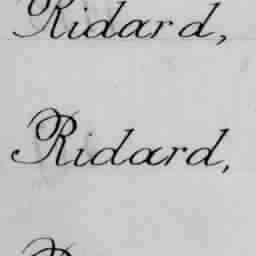 Ridard,
Ridard,